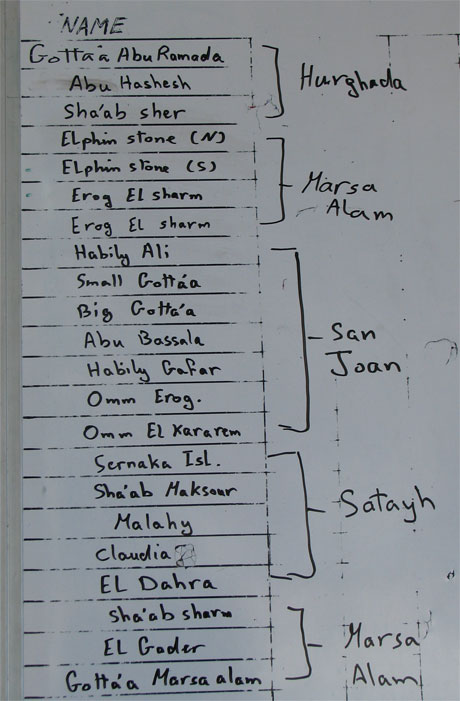 NAME
Gotta'a Abu Ramada
Abu Hashesh
Sha'ab sher
Hurghada
ELphin stone (N)
ELphin stone (S)
Erog El sharm
Erog El sharm
Marsa
Alam
Habily Ali
Small Gotta'a
Big Gotta'a
Abu Bassala
Habily Gafar
Omm Erog.
Omm El Kararem
San
Joan
Sernaka Isl.
Sha'ab Maksour
Malahy
Claudia
EL Dahra
Satayh
Sha'ab sharm
EL Gader
Gotta'a Marsa alam
Marsa
Alam